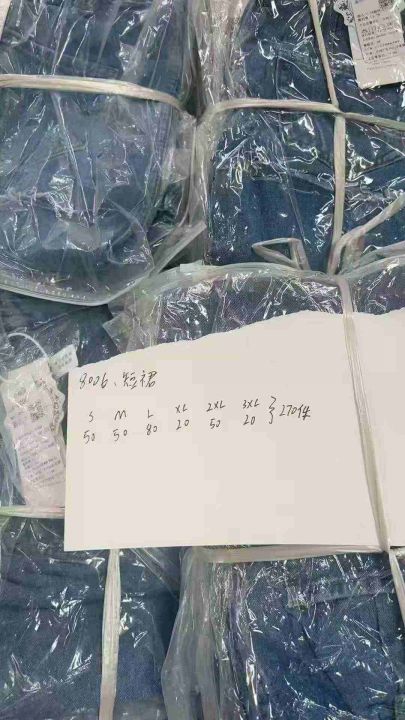 8006、短裙
S M L XL 2XL 3XL
50 50 80 20 50 20 } 270件